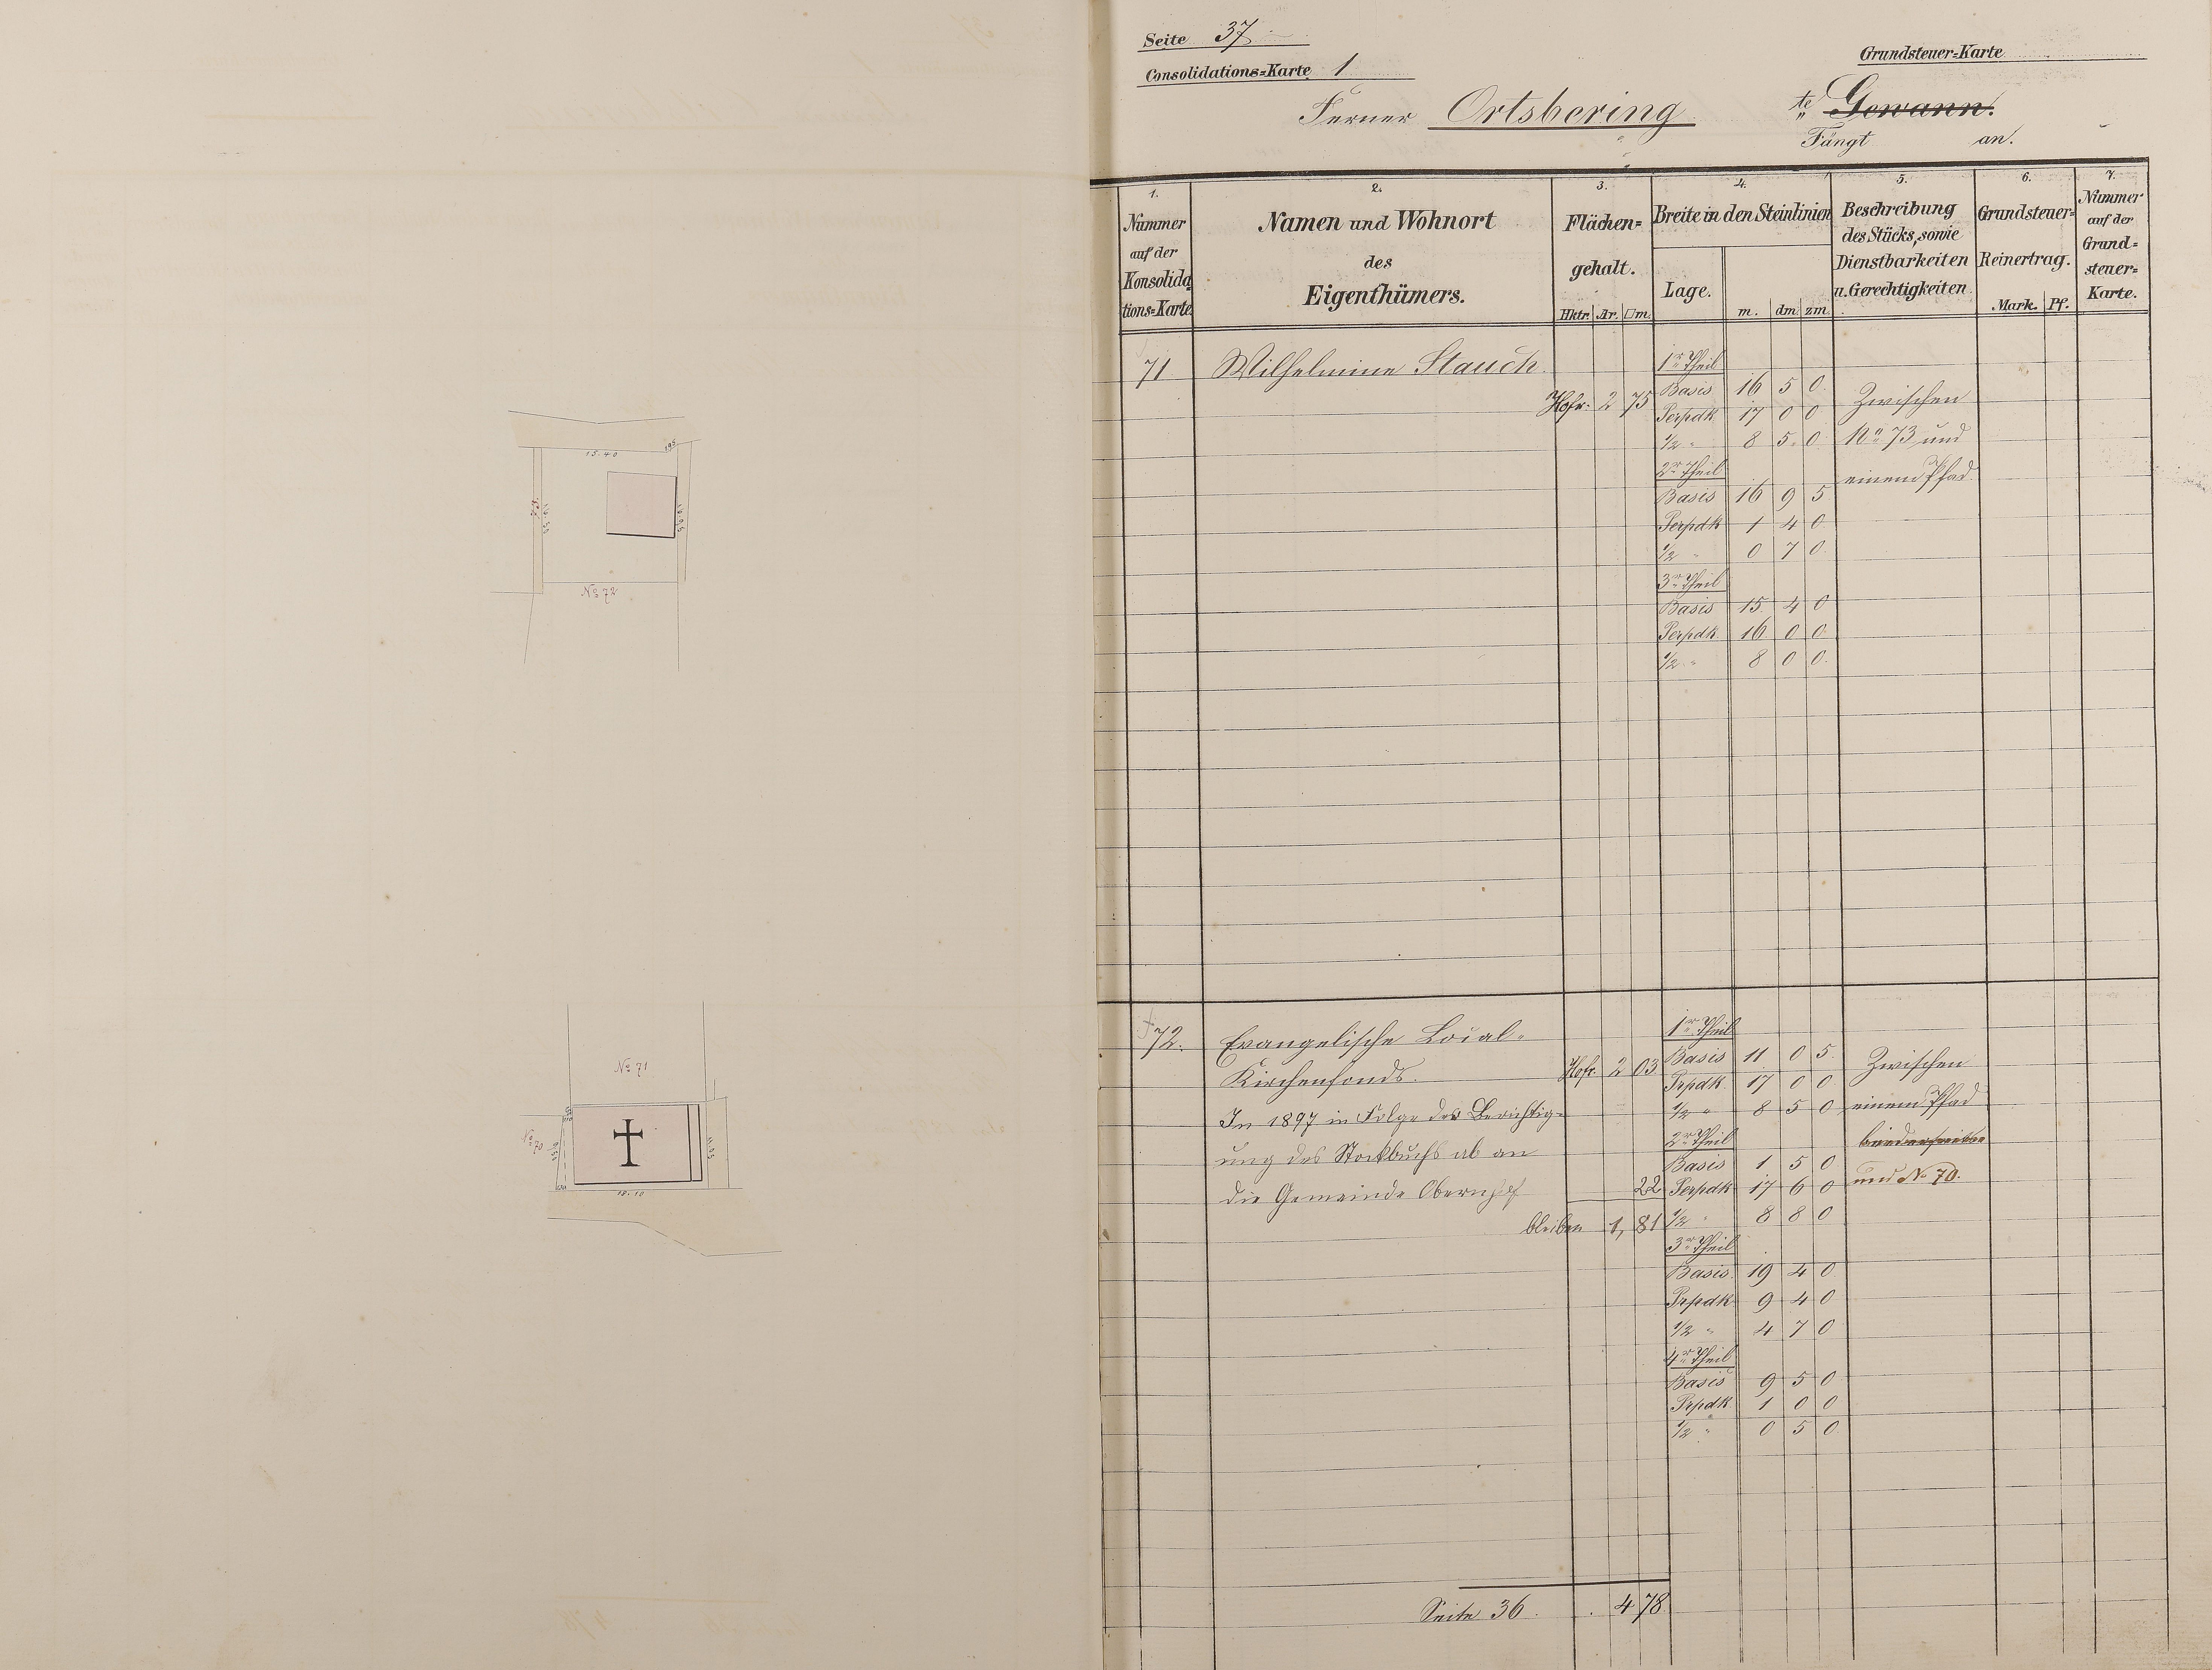 Seite 37
Consolidations=Karte 1
Grundsteuer=Karte
Ferner Ortsbering te Gewann.
Fängt an.
1. 2. 3. 4. 5. 6. 7.
Nummer auf der Konsolidations=Karte
Namen und Wohnort des Eigenthümers.
Flächen=gehalt.
Hktr. Ar. □m.
Breite in den Steinlinien
Lage. m. dm. zm.
Beschreibung des Stücks, sowie Dienstbarkeiten u. Gerechtigkeiten
Grundsteuer=Reinertrag.
Mark. Pf.
Nummer auf der Grund=steuer=Karte.
71 Wilhelmine Stauch
1r Theil
Hofr. 2 75 Basis 16 5 0 Zwischen
Perpdk 17 0 0
1/2 " 8 5 0 No 73 und
2r Theil einem Pfad
Basis 16 9 5
Perpdk 1 4 0
1/2 " 0 7 0
3r Theil
Basis 15 4 0
Perpdk. 16 0 0
1/2 " 8 0 0
15.40
No 72
72. Evangelische Local-
1r Theil
Kirchenfonds. Hofr. 2 03 Basis 11 0 5 Zwischen
Prpdk. 17 0 0
In 1897 in Folge der Berichtig- 1/2 " 8 5 0 einem Pfad
2r Theil
ung des Stockbuchs ab an Basis 1 5 0 und No 70.
die Gemeinde Obernhof 22 Perpdk 17 6 0
bleiben 1, 81 1/2 " 8 8 0
3r Theil
Basis 19 4 0
Prpdk 9 4 0
1/2 " 4 7 0
4r Theil
Basis 9 5 0
Prpdk 1 0 0
1/2 " 0 5 0
No 71
No 70
18.10
Seite 36. 4 78